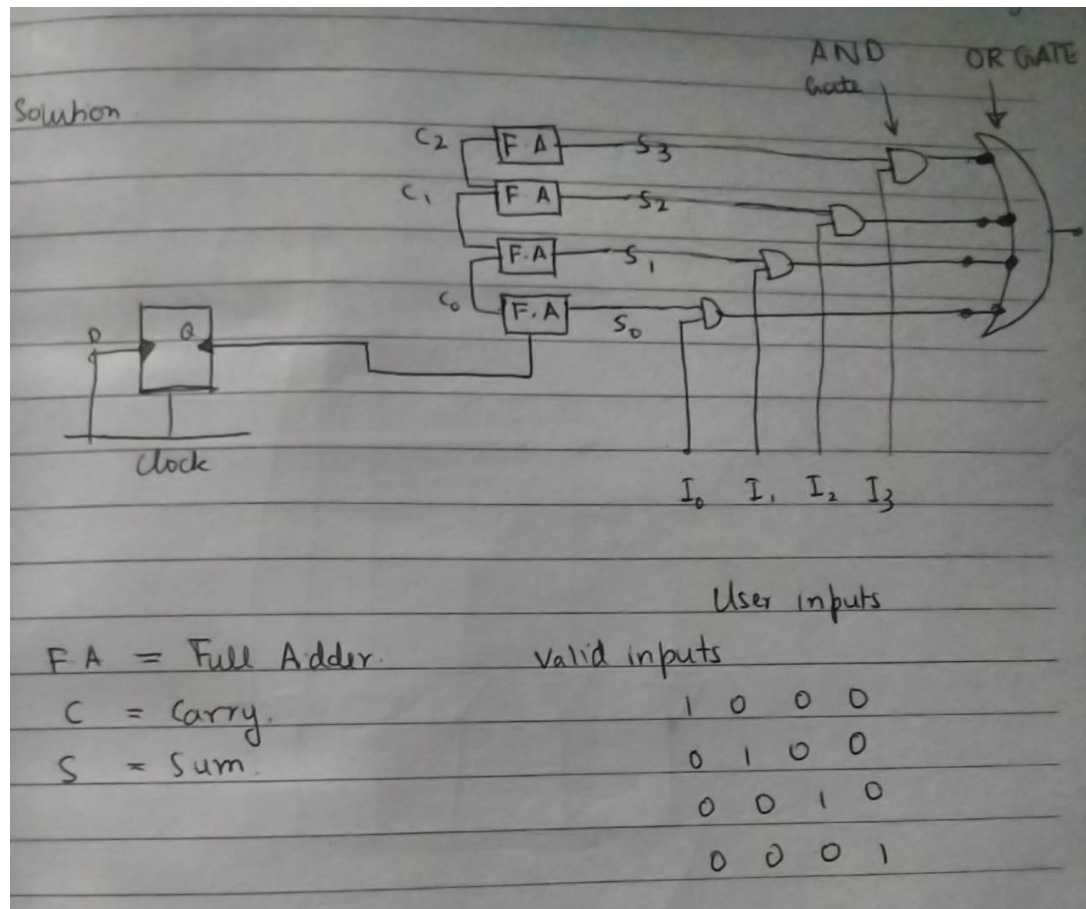 AND
Gate
OR GATE
Solution
C2 F A S3
C1 F A S2
F.A S1
C0 F.A S0
D Q
Clock
I0 I1 I2 I3
User inputs
F.A = Full Adder. Valid inputs
C = Carry. 1 0 0 0
S = Sum. 0 1 0 0
0 0 1 0
0 0 0 1